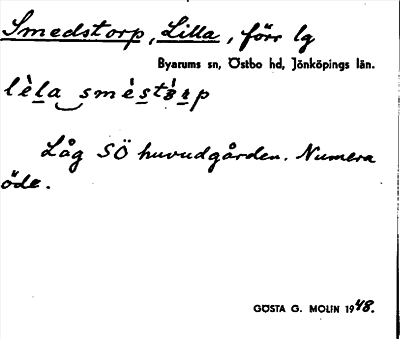 Smedstorp, Lilla, förr lg
Byarums sn, Östbo hd, Jönköpings län.
lèla smèstɜrp
Låg SÖ huvudgården. Numera
öde.
GÖSTA G. MOLIN 1948.